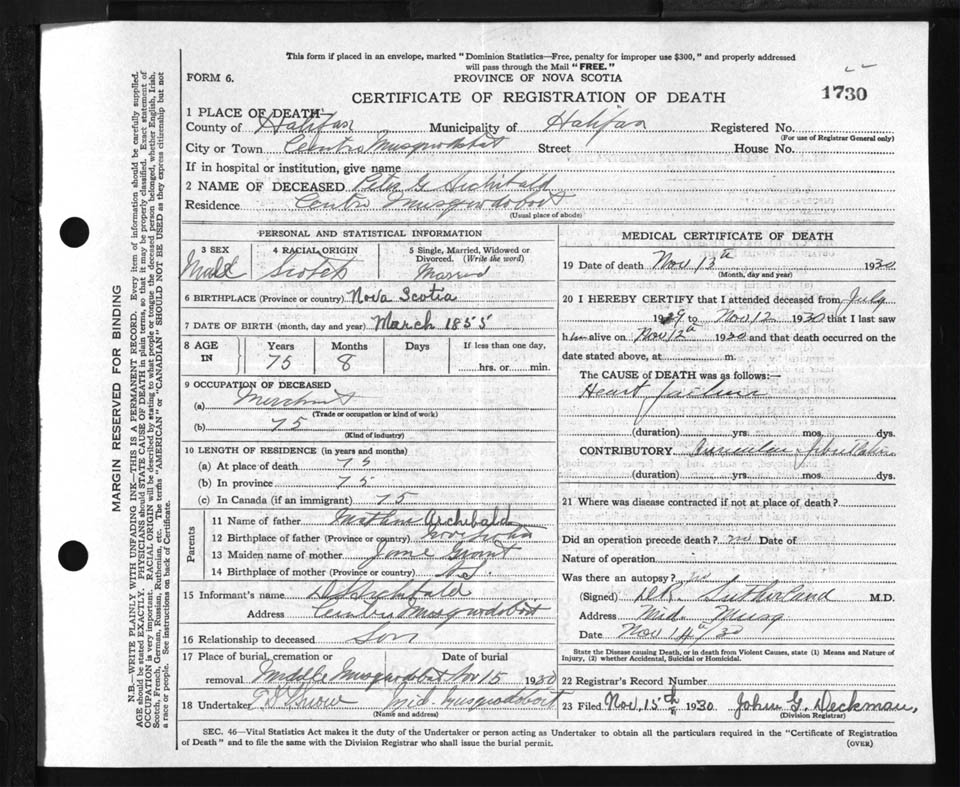 This form if placed in an envelope, marked "Dominion Statistics—Free, penalty for improper use $300," and properly addressed
will pass through the Mail "FREE."
FORM 6.
PROVINCE OF NOVA SCOTIA
CERTIFICATE OF REGISTRATION OF DEATH
1730
1 PLACE OF DEATH
County of Halifax Municipality of Halifax Registered No.
(For use of Registrar General only)
City or Town Centre Musquodoboit Street House No.
If in hospital or institution, give name
2 NAME OF DECEASED Peter G Archibald
Residence Centre Musquodoboit
(Usual place of abode)
PERSONAL AND STATISTICAL INFORMATION
3 SEX 4 RACIAL ORIGIN 5 Single, Married, Widowed or
Divorced. (Write the word)
Male Scotch Married
6 BIRTHPLACE (Province or country) Nova Scotia
7 DATE OF BIRTH (month, day and year) March 1855
8 AGE IN Years Months Days If less than one day,
75 8 hrs. or min.
9 OCCUPATION OF DECEASED
(a) Merchant
(Trade or occupation or kind of work)
(b) 75
(Kind of industry)
10 LENGTH OF RESIDENCE (in years and months)
(a) At place of death 75
(b) In province 75
(c) In Canada (if an immigrant) 75
Parents
11 Name of father Archibald
12 Birthplace of father (Province or country)
13 Maiden name of mother Jane Grant
14 Birthplace of mother (Province or country)
15 Informant's name Archibald
Address Centre Musquodoboit
16 Relationship to deceased Son
17 Place of burial, cremation or Date of burial
removal Middle Musquodoboit Nov 15 1930
18 Undertaker Snow Mid. Musquodoboit
(Name and address)
MEDICAL CERTIFICATE OF DEATH
19 Date of death Nov 13th 1930
(Month, day and year)
20 I HEREBY CERTIFY that I attended deceased from July
1929 to Nov 12 1930 that I last saw
him alive on Nov 12th 1930 and that death occurred on the
date stated above, at m.
The CAUSE of DEATH was as follows:—
Heart failure
(duration) yrs. mos. dys.
CONTRIBUTORY Auricular fibrillation
(duration) yrs. mos. dys.
21 Where was disease contracted if not at place of death?
Did an operation precede death? no Date of
Nature of operation
Was there an autopsy? no
(Signed) Sutherland M.D.
Address Mid. Musq
Date Nov 14th/30
State the Disease causing Death, or in death from Violent Causes, state (1) Means and Nature of
Injury, (2) whether Accidental, Suicidal or Homicidal.
22 Registrar's Record Number
23 Filed Nov. 15th 1930. John G. Deckman,
(Division Registrar)
SEC. 46—Vital Statistics Act makes it the duty of the Undertaker or person acting as Undertaker to obtain all the particulars required in the "Certificate of Registration
of Death" and to file the same with the Division Registrar who shall issue the burial permit.
(OVER)
MARGIN RESERVED FOR BINDING
N.B.—WRITE PLAINLY, WITH UNFADING INK—THIS IS A PERMANENT RECORD. Every item of information should be carefully supplied.
AGE should be stated EXACTLY. PHYSICIANS should STATE CAUSE OF DEATH in plain terms, so that it may be properly classified. Exact statement of
OCCUPATION is very important. RACIAL ORIGIN will be described by stating to what people or tongue the deceased person belonged, whether English, Irish,
Scotch, French, German, Russian, Ruthenian, etc. The terms "AMERICAN" or "CANADIAN" SHOULD NOT BE USED as they express citizenship but not
a race or people. See instructions on back of Certificate.